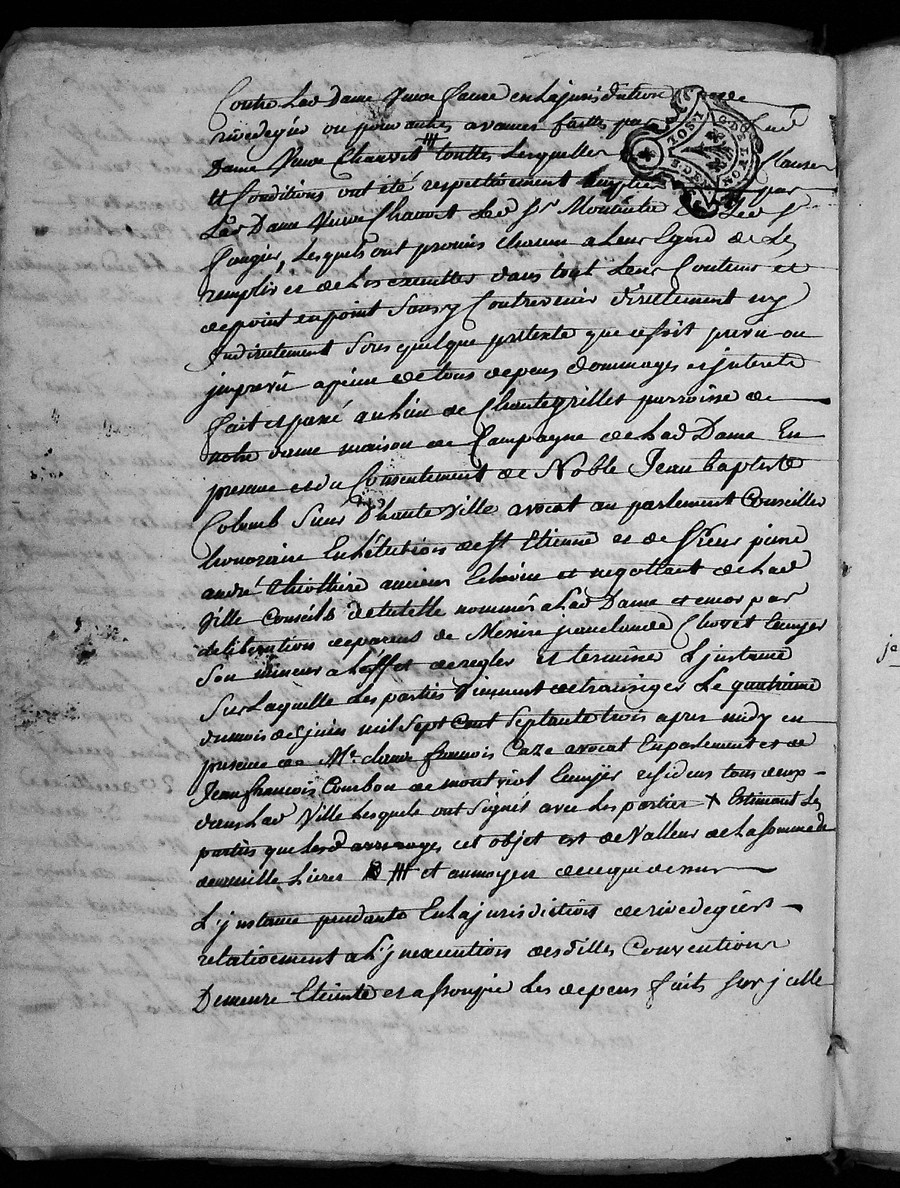 Contre Lad Dame Veuve faure en la jurisdiction de
rivedegier ou pour autres avances faittes par Lad
Dame Veuve Chauvet touttes Lesquelles Clauses
et Conditions ont été respectivement par
Lad Dame Veuve Chauvet Led Sr. Led Sr
Lesquels ont promis chacun a Leur Egard de Les
remplir et de Les executter dans tout Leur Contenu et
de point en point Sans y Contrevenir directement ny
Indirectement Sous quelque pretexte que ce soit prevu ou
imprevû a peine de tous depens dommages et jnterets
fait et passé au Lieu de Chantegrillet parroisse de
notre dame maison de Campagne de Lad Dame En
presance et du Consentement de Noble Jean baptiste
Colomb Sieur D'hauteville avocat au parlement Conseiller
honoraire En L'élection de St Etienne et de Sieur
andré thiolliere ancien Echevin et negottiant de Lad
Ville Conseils de tutelle nommés a Lad Dame par
deliberation de parens de Messire Chovet Ecuyer
Son mineur a L'effet de regler et terminer L'jnstance
Sur Laquelle Les parties viennent de transiger Le quatrieme
du mois de juin mil Sept Cent Septante trois apres midy en
presence de Me. claude francois Caze avocat En parlement et de
Jean francois Courbon de montviol Ecuyer residens tous deux
dans Lad Ville Lesquels ont Signé avec Les parties + Estimant Les
parties que Lesd arrerages cet objet est de Valleur de La somme de
deux mille Livres ## et au moyen de ce que dessus
L'jnstance pendante En La jurisdiction de rivedegier
relativement a L'jnexecution desdittes Conventions
Demeure Eteinte et assoupie Les depens faits Sur jcelle
G. DE LYON